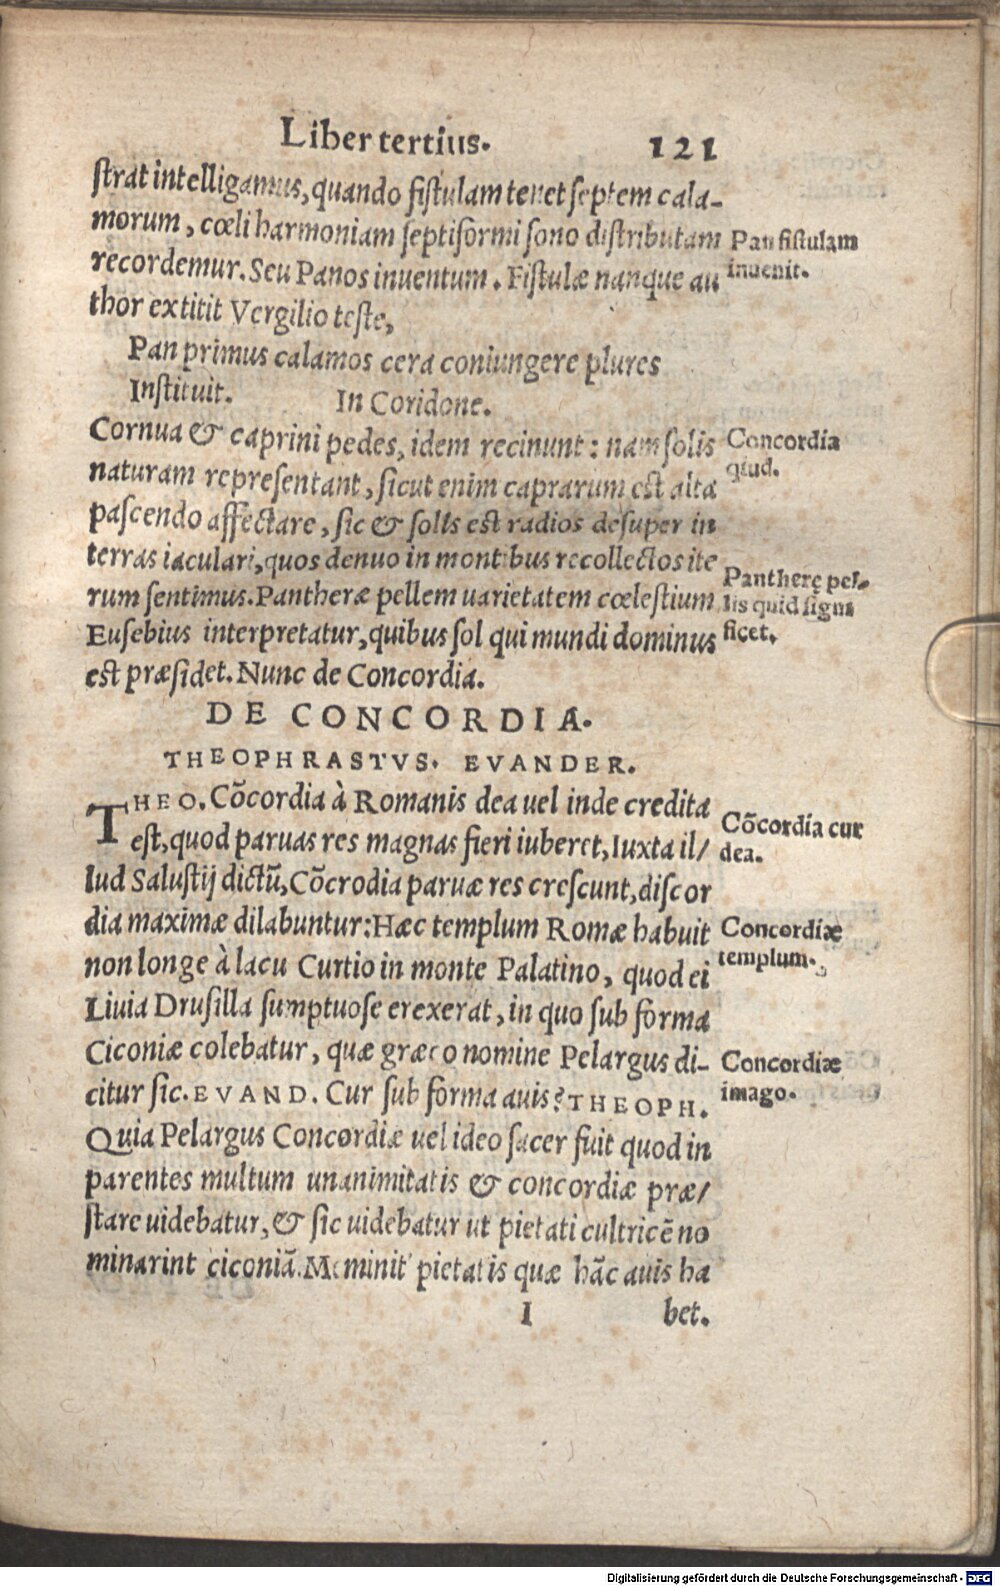 Liber tertius. 121
strat intelligamus, quando fistulam tenet septem cala-
morum, cœli harmoniam septiformi sono distributam
recordemur. Seu Panos inuentum. Fistulæ nanque au
thor extitit Vergilio teste,
Pan primus calamos cera coniungere plures
Instituit. In Coridone.
Cornua & caprini pedes, idem recinunt: nam solis
naturam representant, sicut enim caprarum est alta
pascendo affectare, sic & solis est radios desuper in
terras iaculari, quos denuo in montibus recollectos ite
rum sentimus. Pantheræ pellem uarietatem cœlestium
Eusebius interpretatur, quibus sol qui mundi dominus
est præsidet. Nunc de Concordia.
Pan fistulam
inuenit.
Concordia
quid.
Pantherę pel-
lis quid signi
ficet.
DE CONCORDIA.
THEOPHRASTVS. EVANDER.
THEO. Cōcordia à Romanis dea uel inde credita
est, quod paruas res magnas fieri iuberet, Iuxta il/
lud Salustij dictū, Cōcrodia paruæ res crescunt, discor
dia maximæ dilabuntur: Hæc templum Romæ habuit
non longe à lacu Curtio in monte Palatino, quod ei
Liuia Drusilla sumptuose erexerat, in quo sub forma
Ciconiæ colebatur, quæ græco nomine Pelargus di-
citur sic. EVAND. Cur sub forma auis? THEOPH.
Quia Pelargus Concordiæ uel ideo sacer fuit quod in
parentes multum unanimitatis & concordiæ præ/
stare uidebatur, & sic uidebatur ut pietati cultricē no
minarint ciconiā. Meminit pietatis quæ hāc auis ha
Cōcordia cur
dea.
Concordiæ
templum.
Concordiæ
imago.
I bet.
Digitalisierung gefördert durch die Deutsche Forschungsgemeinschaft - DFG